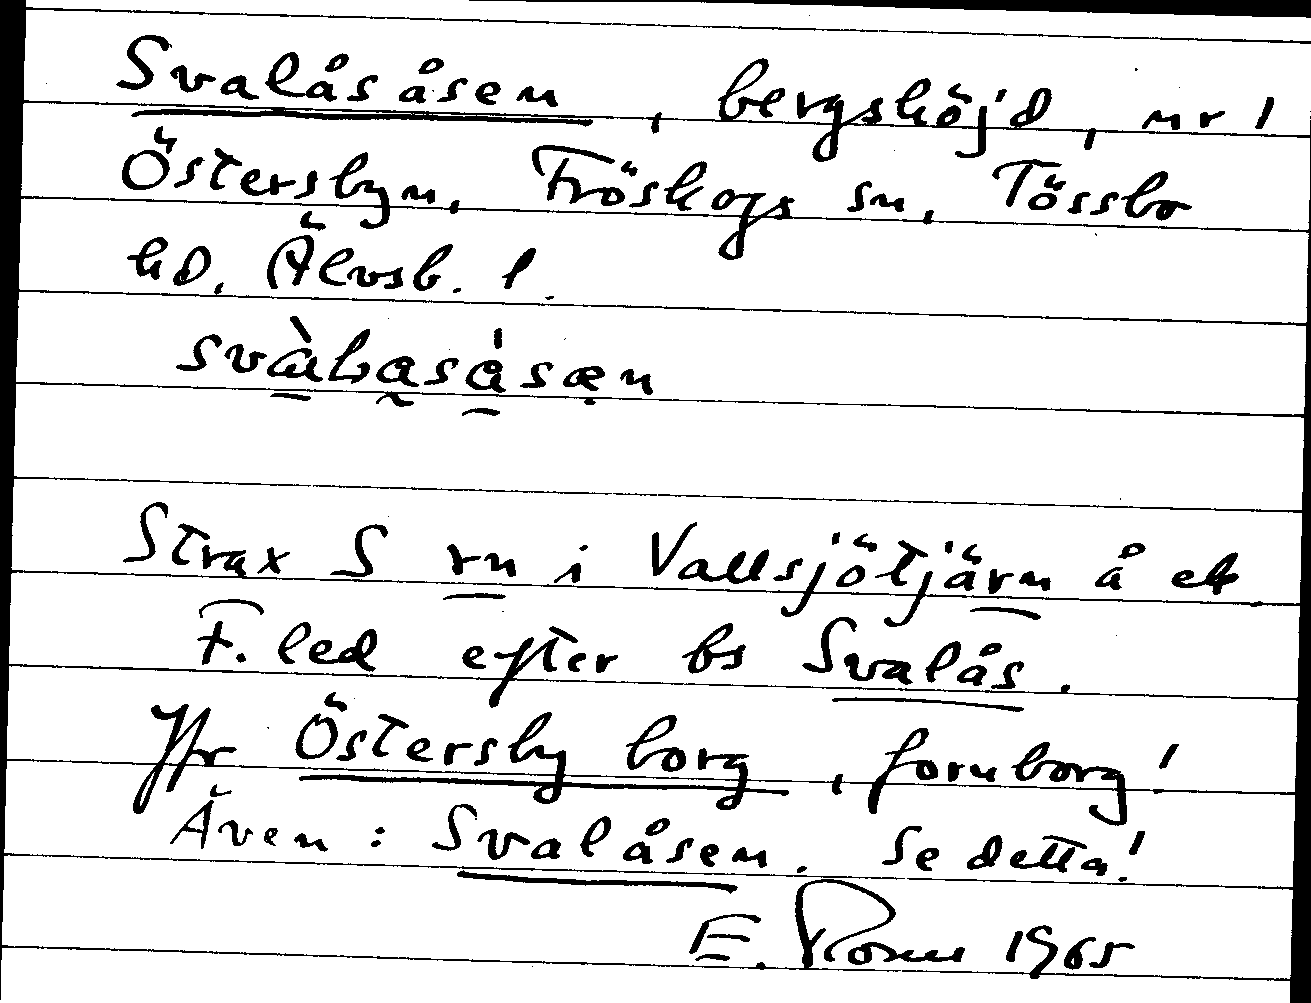 Svalåsåsen, bergshöjd, nr 1
Östersbyn, Fröskogs sn, Tössbo
hd, Älvsb. l.
Strax S rn i Vallsjötjärn å ek
F. led efter bs Svalås.
Jfr Östersby borg, fornborg!
Även: Svalåsen. Se detta!
E. 1965